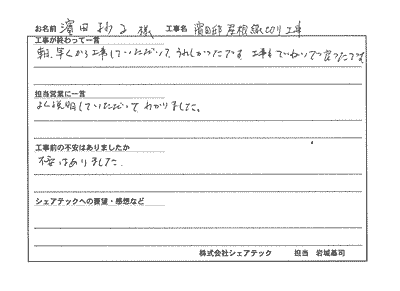 お名前 濱田 様 工事名 濱田邸 屋根縁切り工事
工事が終わって一言
朝、早くから工事していただいて、うれしかったです。工事もていねいで良かったです
担当営業に一言
よく説明していただいて、わかりました。
工事前の不安はありましたか
不安はありました。
シェアテックへの要望・感想など
株式会社シェアテック 担当 岩城基司